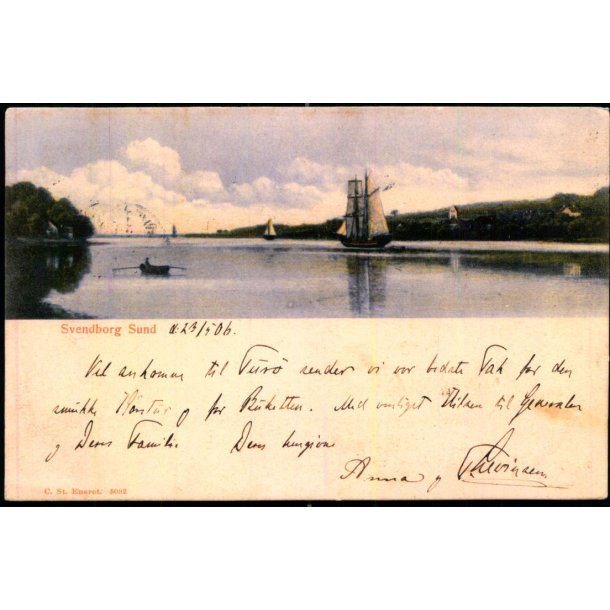 Svendborg Sund d. 23/5 06.
Vel ankomne til Turø sender vi vor bedste Tak for den
smukke Køretur og for Buketten. Med venligst Hilsen til Generalen
og Deres Familie Deres hengivne
Anna og
C. St. Eneret. 5092